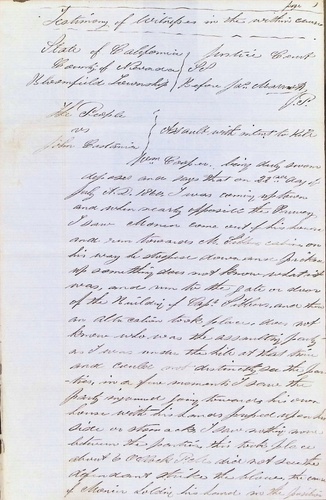 page 1
Testimony of Witnesses in the within cause
State of California } Justice Court
County of Nevada } SS
Bloomfield Township } Before Jas.
J.P.
The People
vs } Assault with intent to Kill
John
Cooper, being duly sworn
deposes and says that on 22nd day of
July A.D. 186 I was coming up town
and when nearly opposite the Brewery
I saw come out of his house
and run towards Mr. cabin on
his way he stoped down and picked
up something does not know what it
was, and run to the gate or door
of the Building of Cap. and then
an altercation took place, does not
know who was the assaulting party
as I was under the hill at that time
and could not distinctly see the par-
ties, in a few moments I saw the
party injured going towards his own
house with his hands pressed upon his
side or stomach I saw nothing more
between the parties, this took place
about 6 O Clock did not see the
defendant strike the blow, he came
holding his hands in the